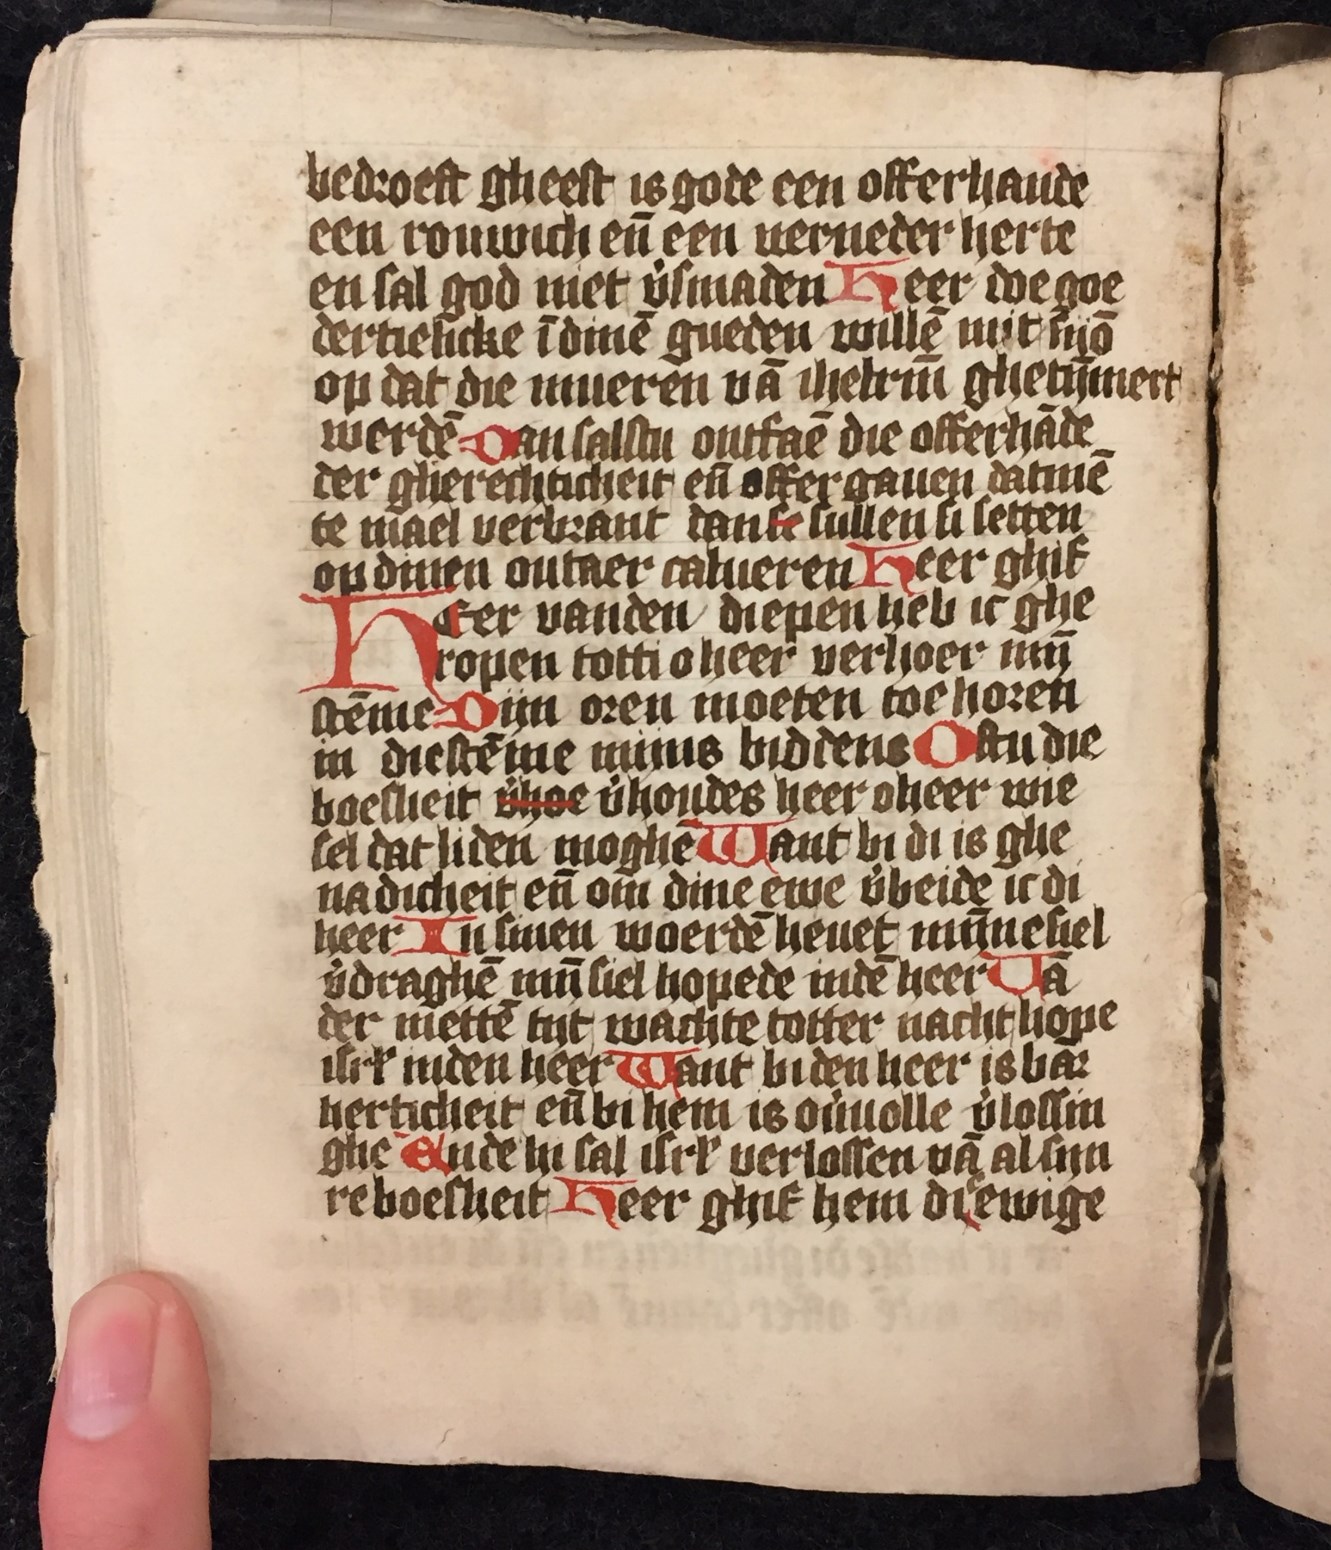 bedroeft gheest is gode een offerhande
een rouwich en̄ een verneder herte
en sal god niet v̾smaden Heer doe goe
dertielicke ī dinē gueden willē mit syō
op dat die mueren vā ihelrm̄ ghetȳmert
werdē Dan salstu ontfaē die offerhāde
der gherechticheit en̄ offer gauen datmē
te mael verbrant dan se sullen si setten
op dinen outaer calueren Heer ghif
Heer vanden diepen heb ic ghe
ropen totti o heer verhoer mijn̄
stēme Dijn oren moeten toe horen
in die stēme mijns biddens Ofstu die
boesheit v̾hoe v̾houdes heer o heer wie
sel dat liden moghē Want bi di is ghe
nadicheit en̄ om dine ewe v̾beide ic di
heer In sinen woerdē heuet mijn̄e siel
v̾draghē mijn̄ siel hopede indē heer Vā
der mettē tijt wachte totter nacht hope
isrl̄ inden heer Want bi den heer is bar
herticheit en̄ bi hem is ou̾uolle v̾lossin
ghe Ende hi sal isrl̄ verlossen vā al sijn
re boesheit Heer ghif hem die ewige